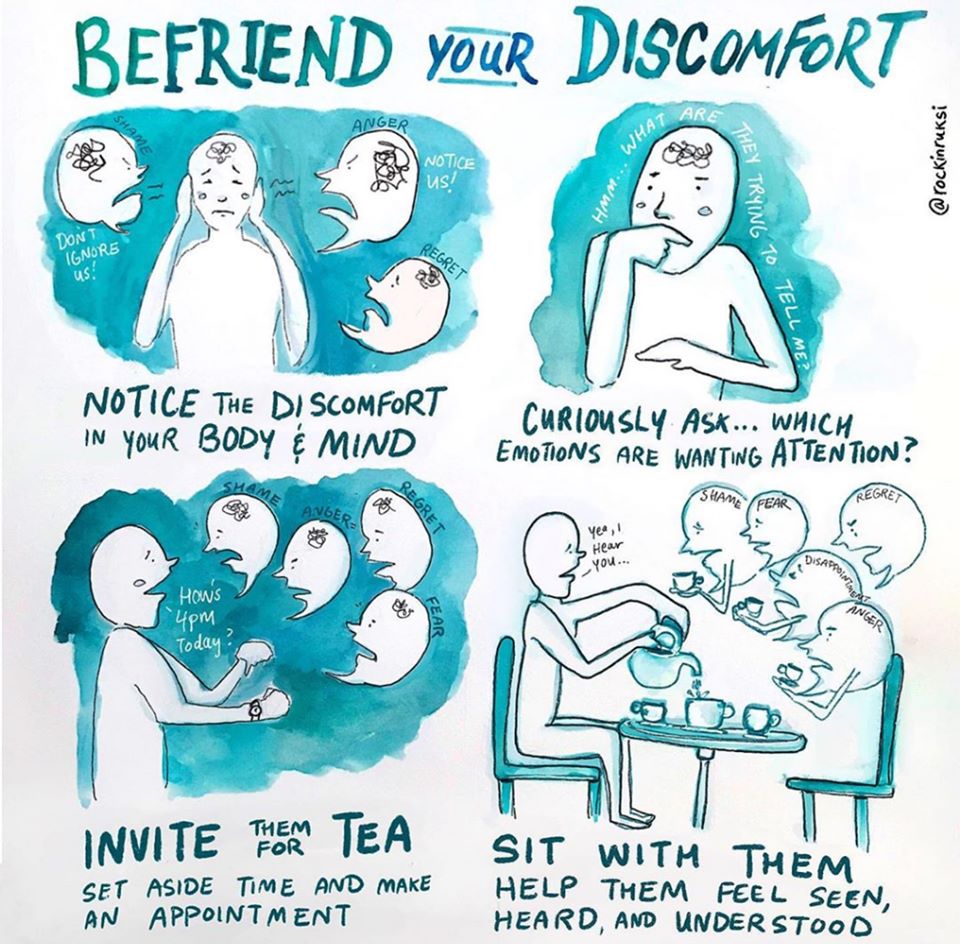 BEFRIEND YOUR DISCOMFORT
@rockinruksi
SHAME
ANGER
NOTICE
US!
DON'T
IGNORE
US!
REGRET
NOTICE THE DISCOMFORT
IN YOUR BODY & MIND
HMM... WHAT ARE THEY TRYING TO TELL ME?
CURIOUSLY ASK... WHICH
EMOTIONS ARE WANTING ATTENTION?
SHAME
ANGER
REGRET
FEAR
How's
4pm
Today?
INVITE THEM FOR TEA
SET ASIDE TIME AND MAKE
AN APPOINTMENT
Yea, I
Hear
you...
SHAME
FEAR
REGRET
DISAPPOINTMENT
ANGER
SIT WITH THEM
HELP THEM FEEL SEEN,
HEARD, AND UNDERSTOOD